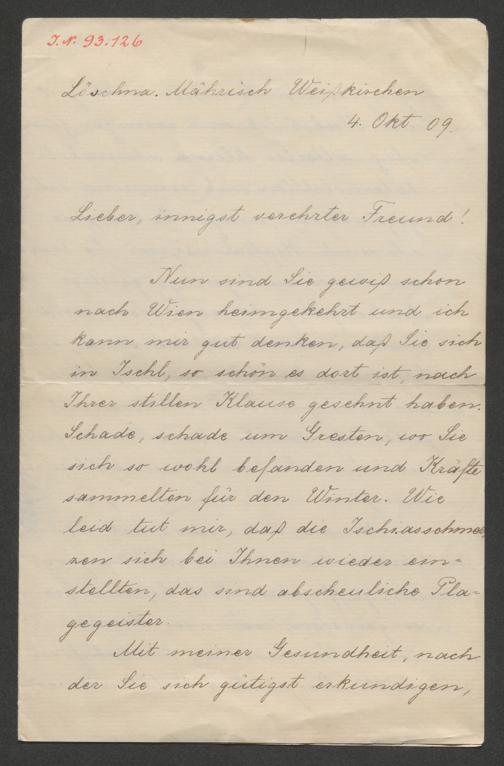 J.N. 93.126
Löschna. Mährisch Weißkirchen
4. Okt. 09.
Lieber, innigst verehrter Freund!
Nun sind Sie gewiß schon
nach Wien heimgekehrt und ich
kann mir gut denken, daß Sie sich
in Ischl, so schön es dort ist, nach
Ihrer stillen Klause gesehnt haben.
Schade, schade um Gresten, wo Sie
sich so wohl befanden und Kräfte
sammelten für den Winter. Wie
leid tut mir, daß die Ischiasschmer
zen sich bei Ihnen wieder ein-
stellten, das sind abscheuliche Pla-
gegeister.
Mit meiner Gesundheit, nach
der Sie sich gütigst erkundigen,